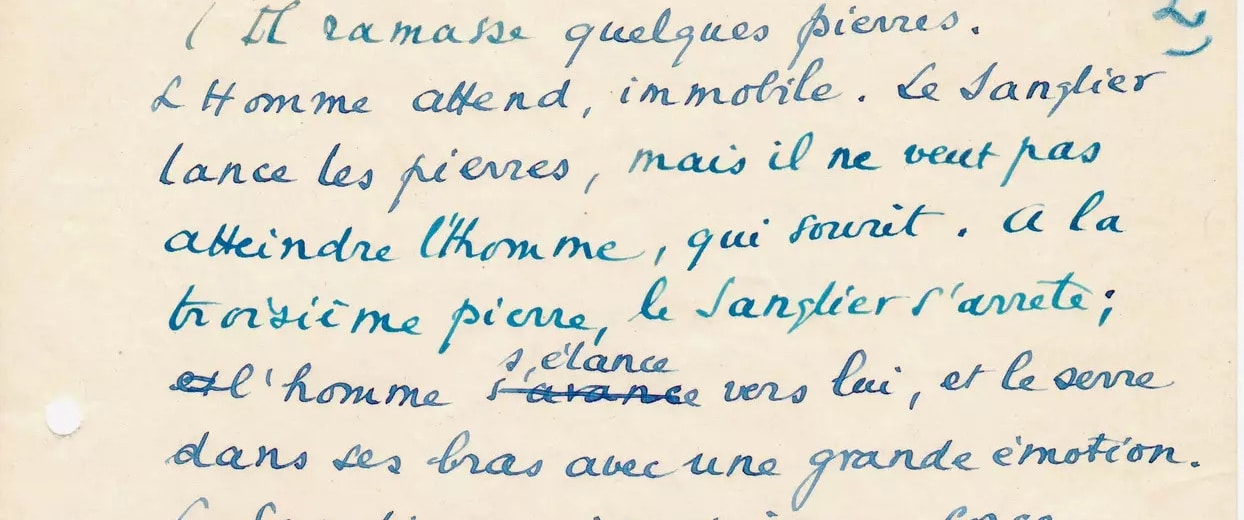 2)
( Il ramasse quelques pierres.
L'Homme attend, immobile. Le Sanglier
lance les pierres, mais il ne veut pas
atteindre l'Homme, qui sourit. A la
troisième pierre, le Sanglier s'arrête;
s'élance
et l'homme s'avance vers lui, et le serre
dans ses bras avec une grande émotion.